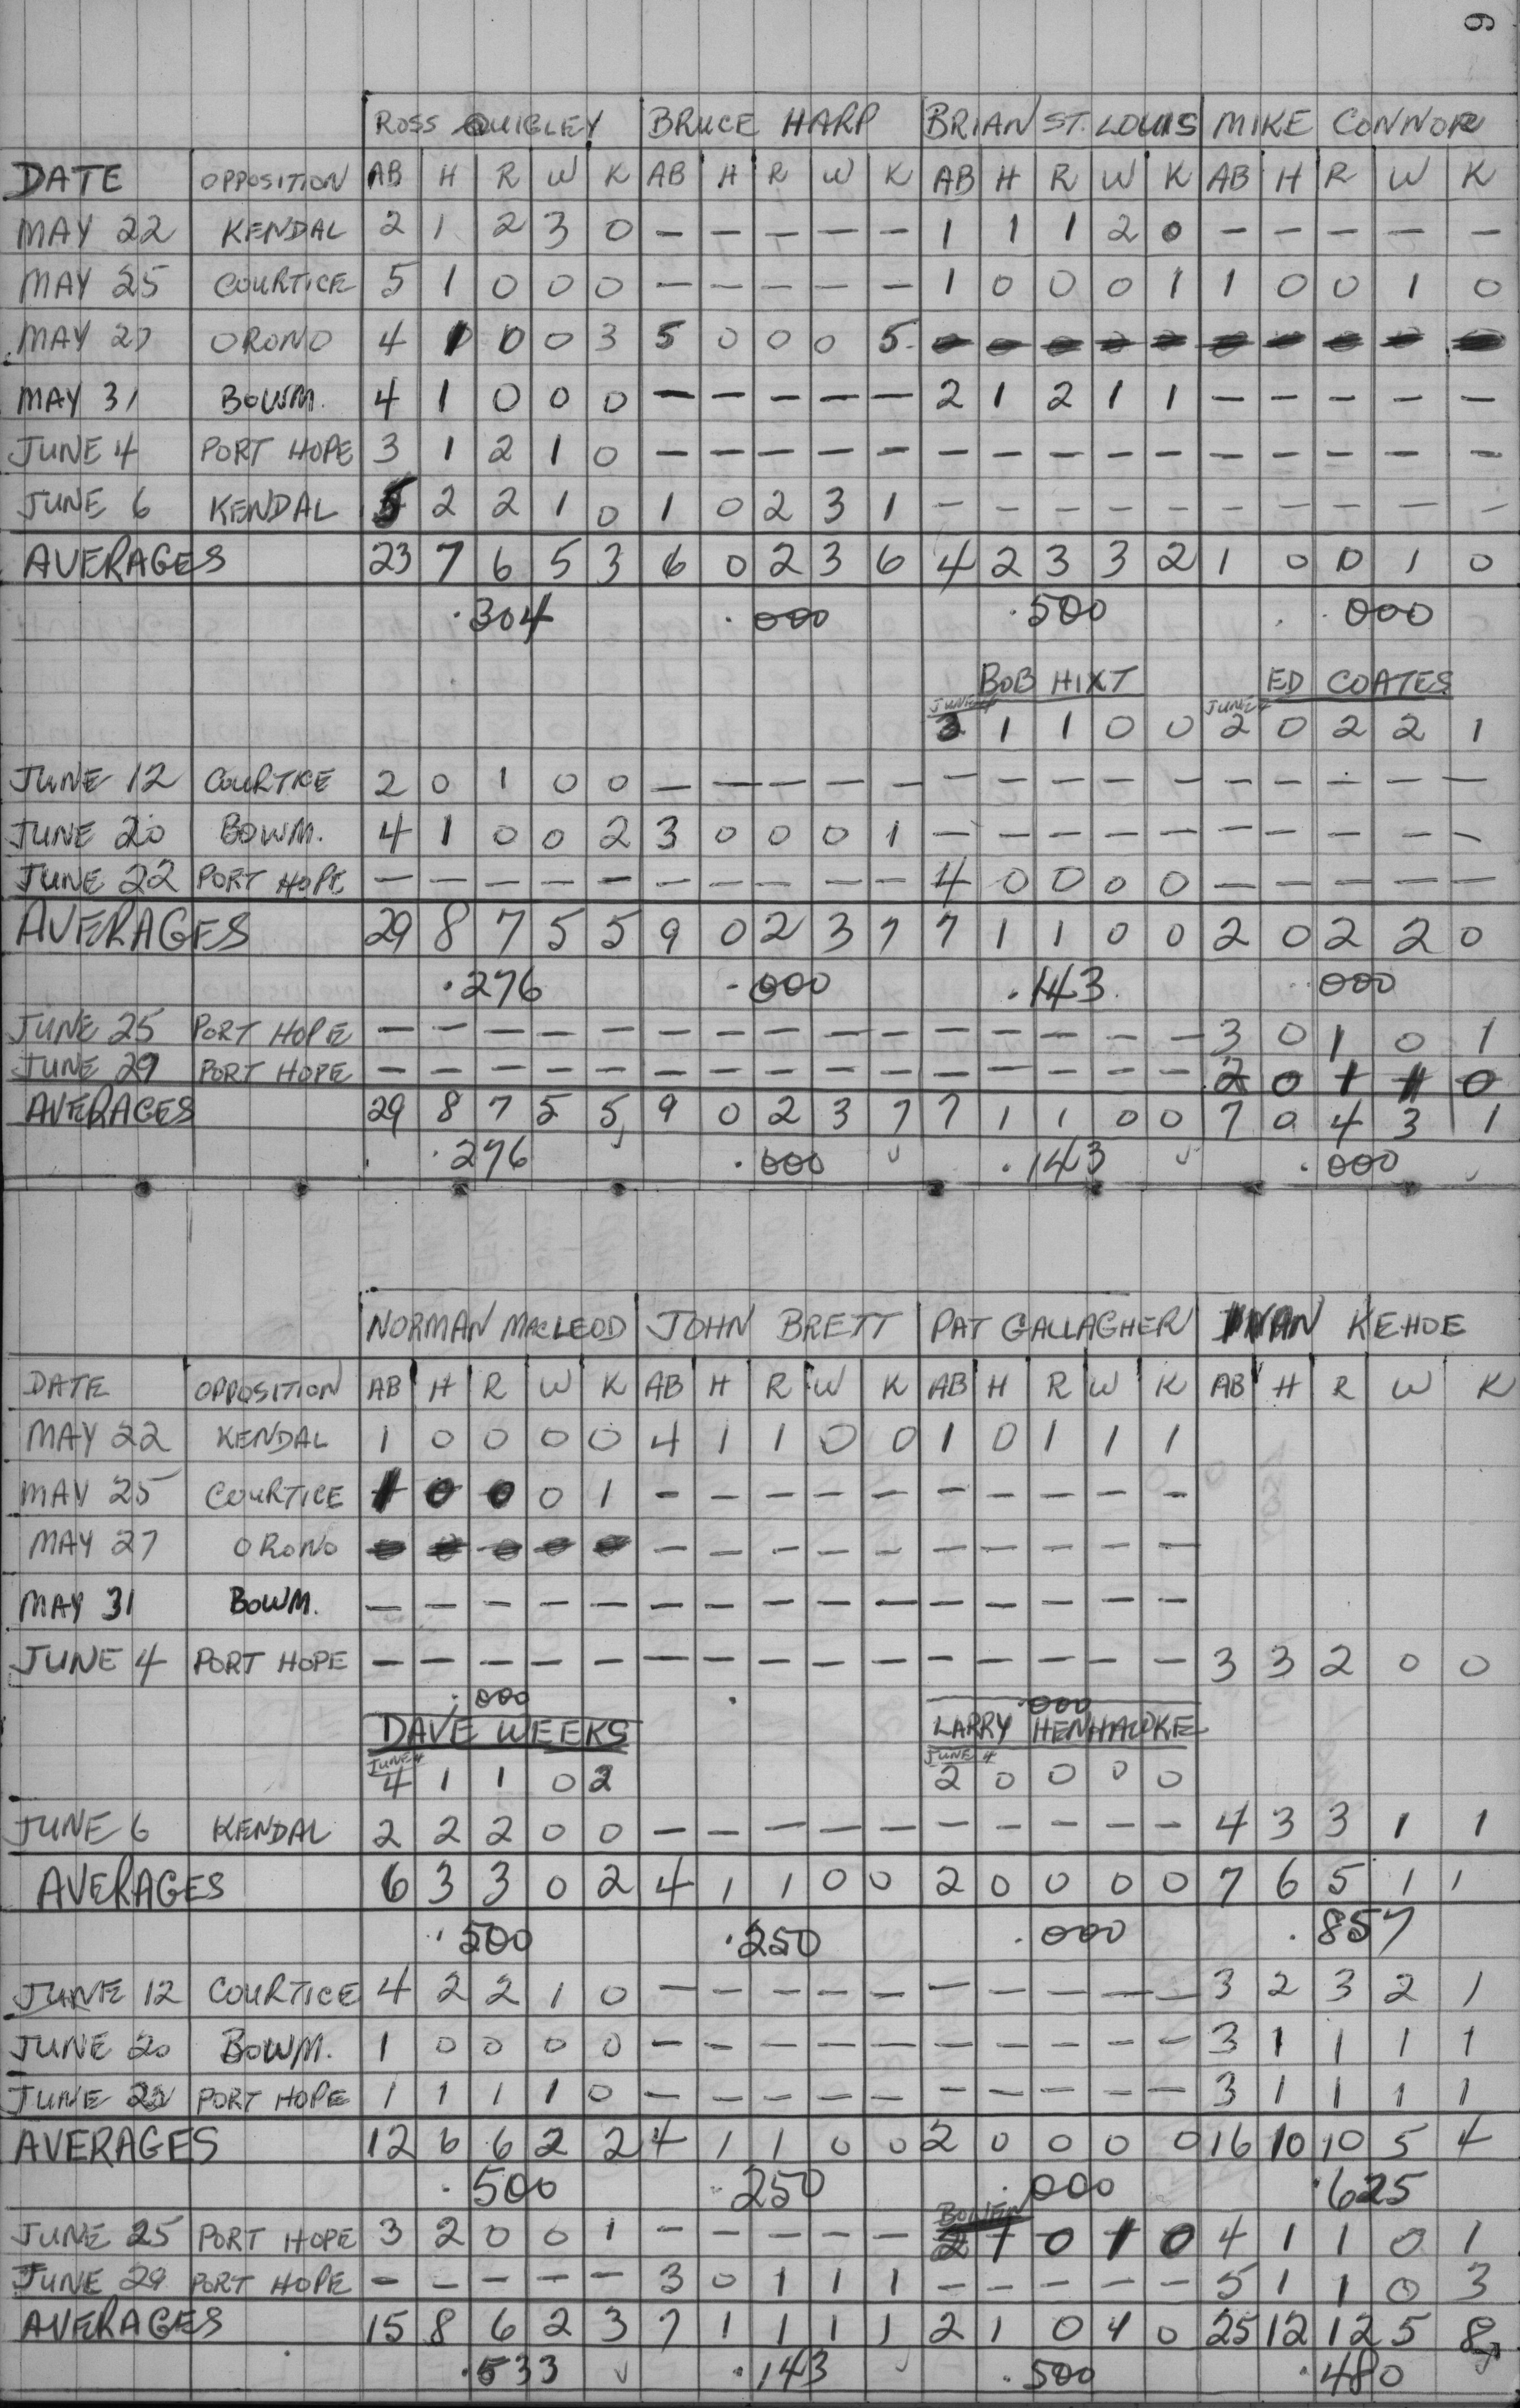 9
ROSS QUIGLEY BRUCE HARP BRIAN ST. LOUIS MIKE CONNOR
DATE OPPOSITION AB H R W K AB H R W K AB H R W K AB H R W K
MAY 22 KENDAL 2 1 2 3 0 – – – – – 1 1 1 2 0 – – – – –
MAY 25 COURTICE 5 1 0 0 0 – – – – – 1 0 0 0 1 1 0 0 1 0
MAY 27 ORONO 4 1 0 0 3 5 0 0 0 5
MAY 31 BOWM. 4 1 0 0 0 – – – – – 2 1 2 1 1 – – – – –
JUNE 4 PORT HOPE 3 1 2 1 0 – – – – – – – – – – – – – – –
JUNE 6 KENDAL 5 2 2 1 0 1 0 2 3 1 – – – – – – – – – –
AVERAGES 23 7 6 5 3 6 0 2 3 6 4 2 3 3 2 1 0 0 1 0
.304 .000 .500 .000
BOB HIXT ED COATES
JUNE 4 JUNE 4
3 1 1 0 0 2 0 2 2 1
JUNE 12 COURTICE 2 0 1 0 0 – – – – – – – – – – – – – – –
JUNE 20 BOWM. 4 1 0 0 2 3 0 0 0 1 – – – – – – – – – –
JUNE 22 PORT HOPE – – – – – – – – – – 4 0 0 0 0 – – – – –
AVERAGES 29 8 7 5 5 9 0 2 3 7 7 1 1 0 0 2 0 2 2 0
.276 .000 .143 .000
JUNE 25 PORT HOPE – – – – – – – – – – – – – – – 3 0 1 0 1
JUNE 29 PORT HOPE – – – – – – – – – – – – – – – 2 0 1 1 0
AVERAGES 29 8 7 5 5 9 0 2 3 7 7 1 1 0 0 7 0 4 3 1
.276 .000 .143 .000
NORMAN MACLEOD JOHN BRETT PAT GALLAGHER IVAN KEHOE
DATE OPPOSITION AB H R W K AB H R W K AB H R W K AB H R W K
MAY 22 KENDAL 1 0 0 0 0 4 1 1 0 0 1 0 1 1 1
MAY 25 COURTICE 1 0 0 0 1 – – – – – – – – – –
MAY 27 ORONO – – – – – – – – – –
MAY 31 BOWM. – – – – – – – – – – – – – – –
JUNE 4 PORT HOPE – – – – – – – – – – – – – – – 3 3 2 0 0
.000 .000
DAVE WEEKS LARRY HENHAWKE
JUNE 4 JUNE 4
4 1 1 0 2 2 0 0 0 0
JUNE 6 KENDAL 2 2 2 0 0 – – – – – – – – – – 4 3 3 1 1
AVERAGES 6 3 3 0 2 4 1 1 0 0 2 0 0 0 0 7 6 5 1 1
.500 .250 .000 .857
JUNE 12 COURTICE 4 2 2 1 0 – – – – – – – – – – 3 2 3 2 1
JUNE 20 BOWM. 1 0 0 0 0 – – – – – – – – – – 3 1 1 1 1
JUNE 22 PORT HOPE 1 1 1 1 0 – – – – – – – – – – 3 1 1 1 1
AVERAGES 12 6 6 2 2 4 1 1 0 0 2 0 0 0 0 16 10 10 5 4
.500 .250 .000 .625
BOWEN
JUNE 25 PORT HOPE 3 2 0 0 1 – – – – – 2 1 0 1 0 4 1 1 0 1
JUNE 29 PORT HOPE – – – – – 3 0 1 1 1 – – – – – 5 1 1 0 3
AVERAGES 15 8 6 2 3 7 1 1 1 1 2 1 0 1 0 25 12 12 5 8
.533 .143 .500 .480